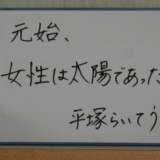 元始、
女性は太陽であった
平塚らいてう